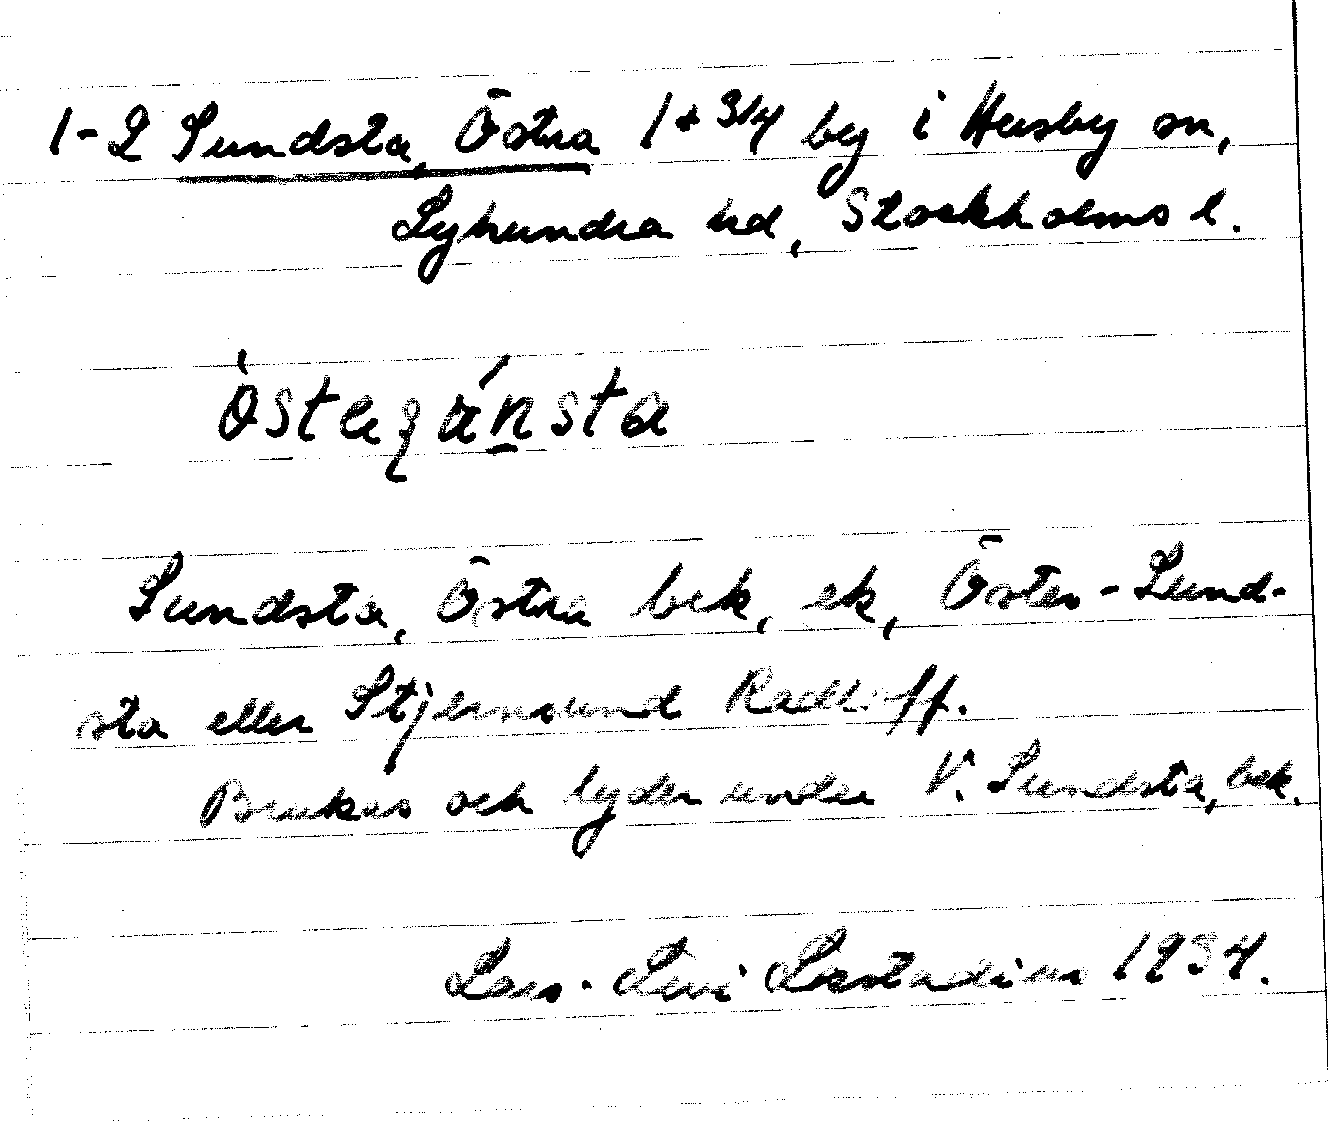 1-2 Sundsta, Östra 1+3/4 by i Husby sn,
Lyhundra hd, Stockholms l.
Sundsta, Östra bek, ek, Öster-Sund-
sta eller Stjernsund Radloff.
Brukas och lyder under V. Sundsta, bek.
Lars-Levi Læstadius 1934.